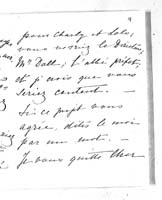 pour Charly et Lola,
vous verriez le Directeur,
Mr Doll; l'abbé préfet,
et je crois que vous
seriez content. —
Si ce projet vous
agrée, dites le moi
par un mot. —
Je vous quitte cher